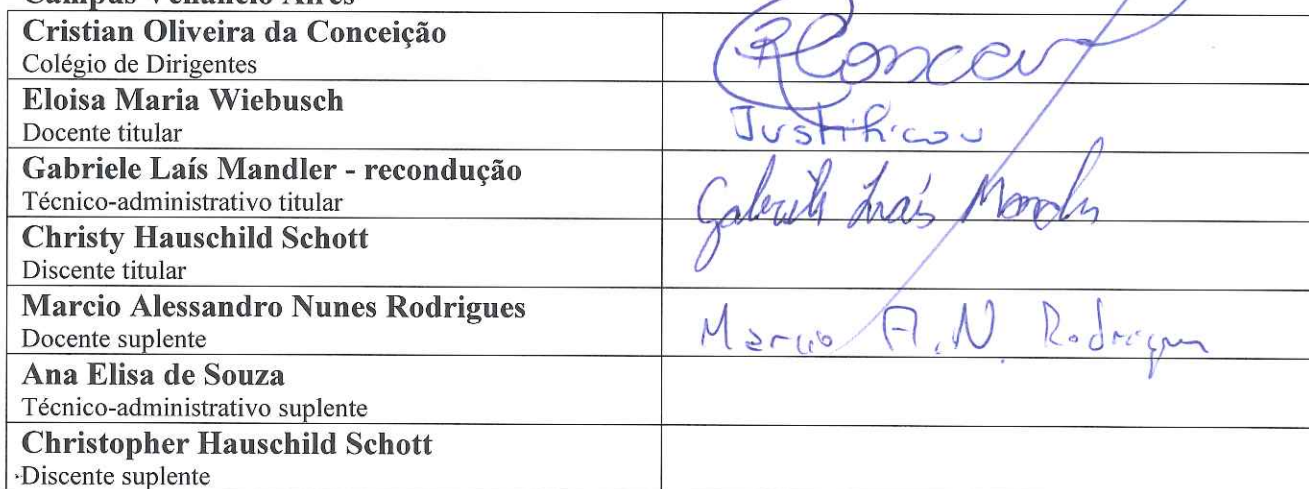 Campus Venâncio Aires
Cristian Oliveira da Conceição
Colégio de Dirigentes
Eloisa Maria Wiebusch
Docente titular
Justificou
Gabriele Laís Mandler - recondução
Técnico-administrativo titular
Gabriele Laís Mandler
Christy Hauschild Schott
Discente titular
Marcio Alessandro Nunes Rodrigues
Docente suplente
Marcio A. N. Rodrigues
Ana Elisa de Souza
Técnico-administrativo suplente
Christopher Hauschild Schott
Discente suplente